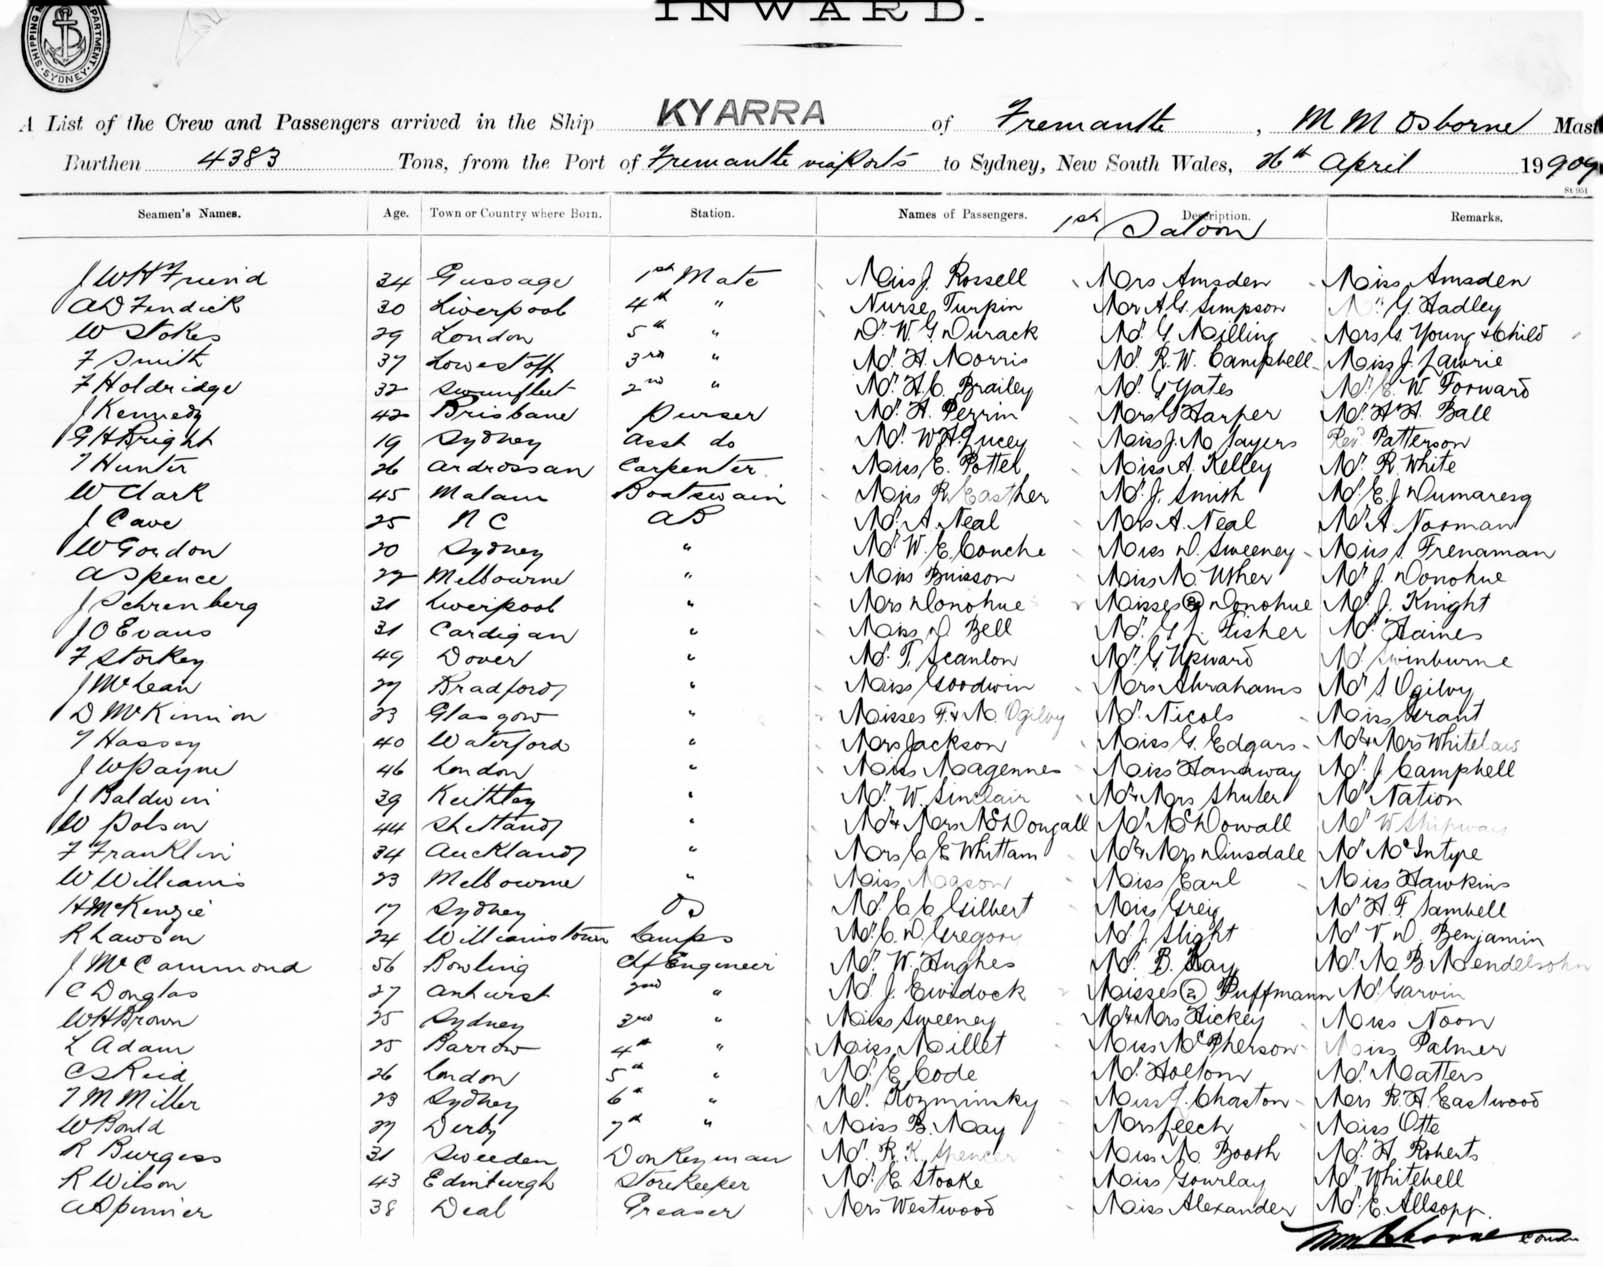 INWARD.
SHIPPING DEPARTMENT SYDNEY
A List of the Crew and Passengers arrived in the Ship KYARRA of Fremantle, M M Osborne Mast
Burthen 4383 Tons, from the Port of Fremantle via Ports to Sydney, New South Wales, 26th April 1909
St 951
Seamen's Names. Age. Town or Country where Born. Station. Names of Passengers. Description. Remarks.
1st Saloon
J W H Friend 34 Gussage 1st Mate Miss J. Rossell Mrs Amsden Miss Amsden
A D Fendick 30 Liverpool 4th " Nurse Turpin Mr A. G. Simpson G. Hadley
W Stokes 29 London 5th " Dr. W. G. Durack Mr. G. Milling Mrs G. Young & Child
F Smith 37 Lowestoff 3rd " Mr. H. Morris Mr. R. W. Campbell Miss J. Lawrie
F Holdridge 32 Swinefleet 2nd " Mr. H. C. Brailey Mr. G Yates Mr. E. W. Forward
J Kennedy 42 Brisbane Purser Mr. H. Perrin Mrs G Harper Mr. H. H. Ball
G H Bright 19 Sydney Asst do Mr. W. H. Lucey Miss J. M. Sayers Rev. Patterson
T Hunter 26 Ardrossan Carpenter Miss E. Pottel Miss A. Kelley Mr. R. White
W Clark 45 Boatswain Miss R. Easther Mr. J. Smith Mr. E. J. Dumaresq
J Cave 25 N C AB Mr. A. Neal Mrs A. Neal Mr A. Norman
W Gordon 20 Sydney " Mr. W. E. Conche Miss D. Sweeney Miss Frenaman
A Spence 22 Melbourne " Miss Buisson Miss M. Usher Mr. J. Donohue
J Schrenberg 31 Liverpool " Mrs Donohue Misses (2) Donohue Mr. J. Knight
J O Evans 31 Cardigan " Miss D. Bell Mr. G. J. Fisher Mr. Haines
F Storkey 49 Dover " Mr. T. Scanlon Mr. G Upward Mr. Swinburne
J McLean 27 Bradford " Miss Goodwin Mrs Abrahams Mr S Ogilvy
D McKinnon 23 Glasgow " Misses F. & M. Ogilvy Mr. Nicols Miss Grant
T Hassey 40 Waterford " Mrs Jackson Miss G. Edgars Mr & Mrs Whitelaw
J W Payne 46 London " Miss Magennes Miss Hanaway Mr. J. Campbell
J Baldwin 39 Keithley " Mr. W. Sinclair Mr & Mrs Shuter Mr Nation
W Polson 44 Shetland " Mr & Mrs McDougall Mr McDowall Mr W Shipway
F Franklin 34 Auckland " Mrs C. E Whittam Mr & Mrs Dinsdale Mr McIntyre
W Williams 23 Melbourne " Miss Mason Miss Earl Miss Hawkins
H McKenzie 17 Sydney OS Mr. C. C. Gilbert Miss Greig Mr H. F. Sambell
R Lawson 24 Williamstown Lamps Mr. C. D. Gregory Mr J. Slight Mr V. D. Benjamin
J McCammond 56 Bowling Chf Engineer Mr. W. Hughes Mr. B. Kay Mr. M. B. Mendelsohn
C Douglas 27 Amhurst 2nd " Mr. J. Misses (2) Puffmann Mr. Garvin
W H Brown 25 Sydney 3rd " Miss Sweeney Mr & Mrs Hickey Miss Noon
L Adam 25 Barrow 4th " Miss Millet Miss McPherson Miss Palmer
C S Reid 26 London 5th " Mr. E. Code Mr. Holtom Mr. Matters
T M Miller 23 Sydney 6th " Mr. Kozminsky Miss J. Chaston Mrs R. H. Eastwood
W Bould 27 Derby 7th " Miss B. May Mrs Leech Miss Otte
R Burgess 31 Sweeden Donkeyman Mr. R. K. Spencer Miss M. Booth Mr. H. Roberts
R Wilson 43 Edinburgh Storekeeper Mr. E Stooke Miss Gourlay Mr. Whitehell
38 Deal Greaser Mrs Westwood Miss Alexander Mr. E. Allsopp.